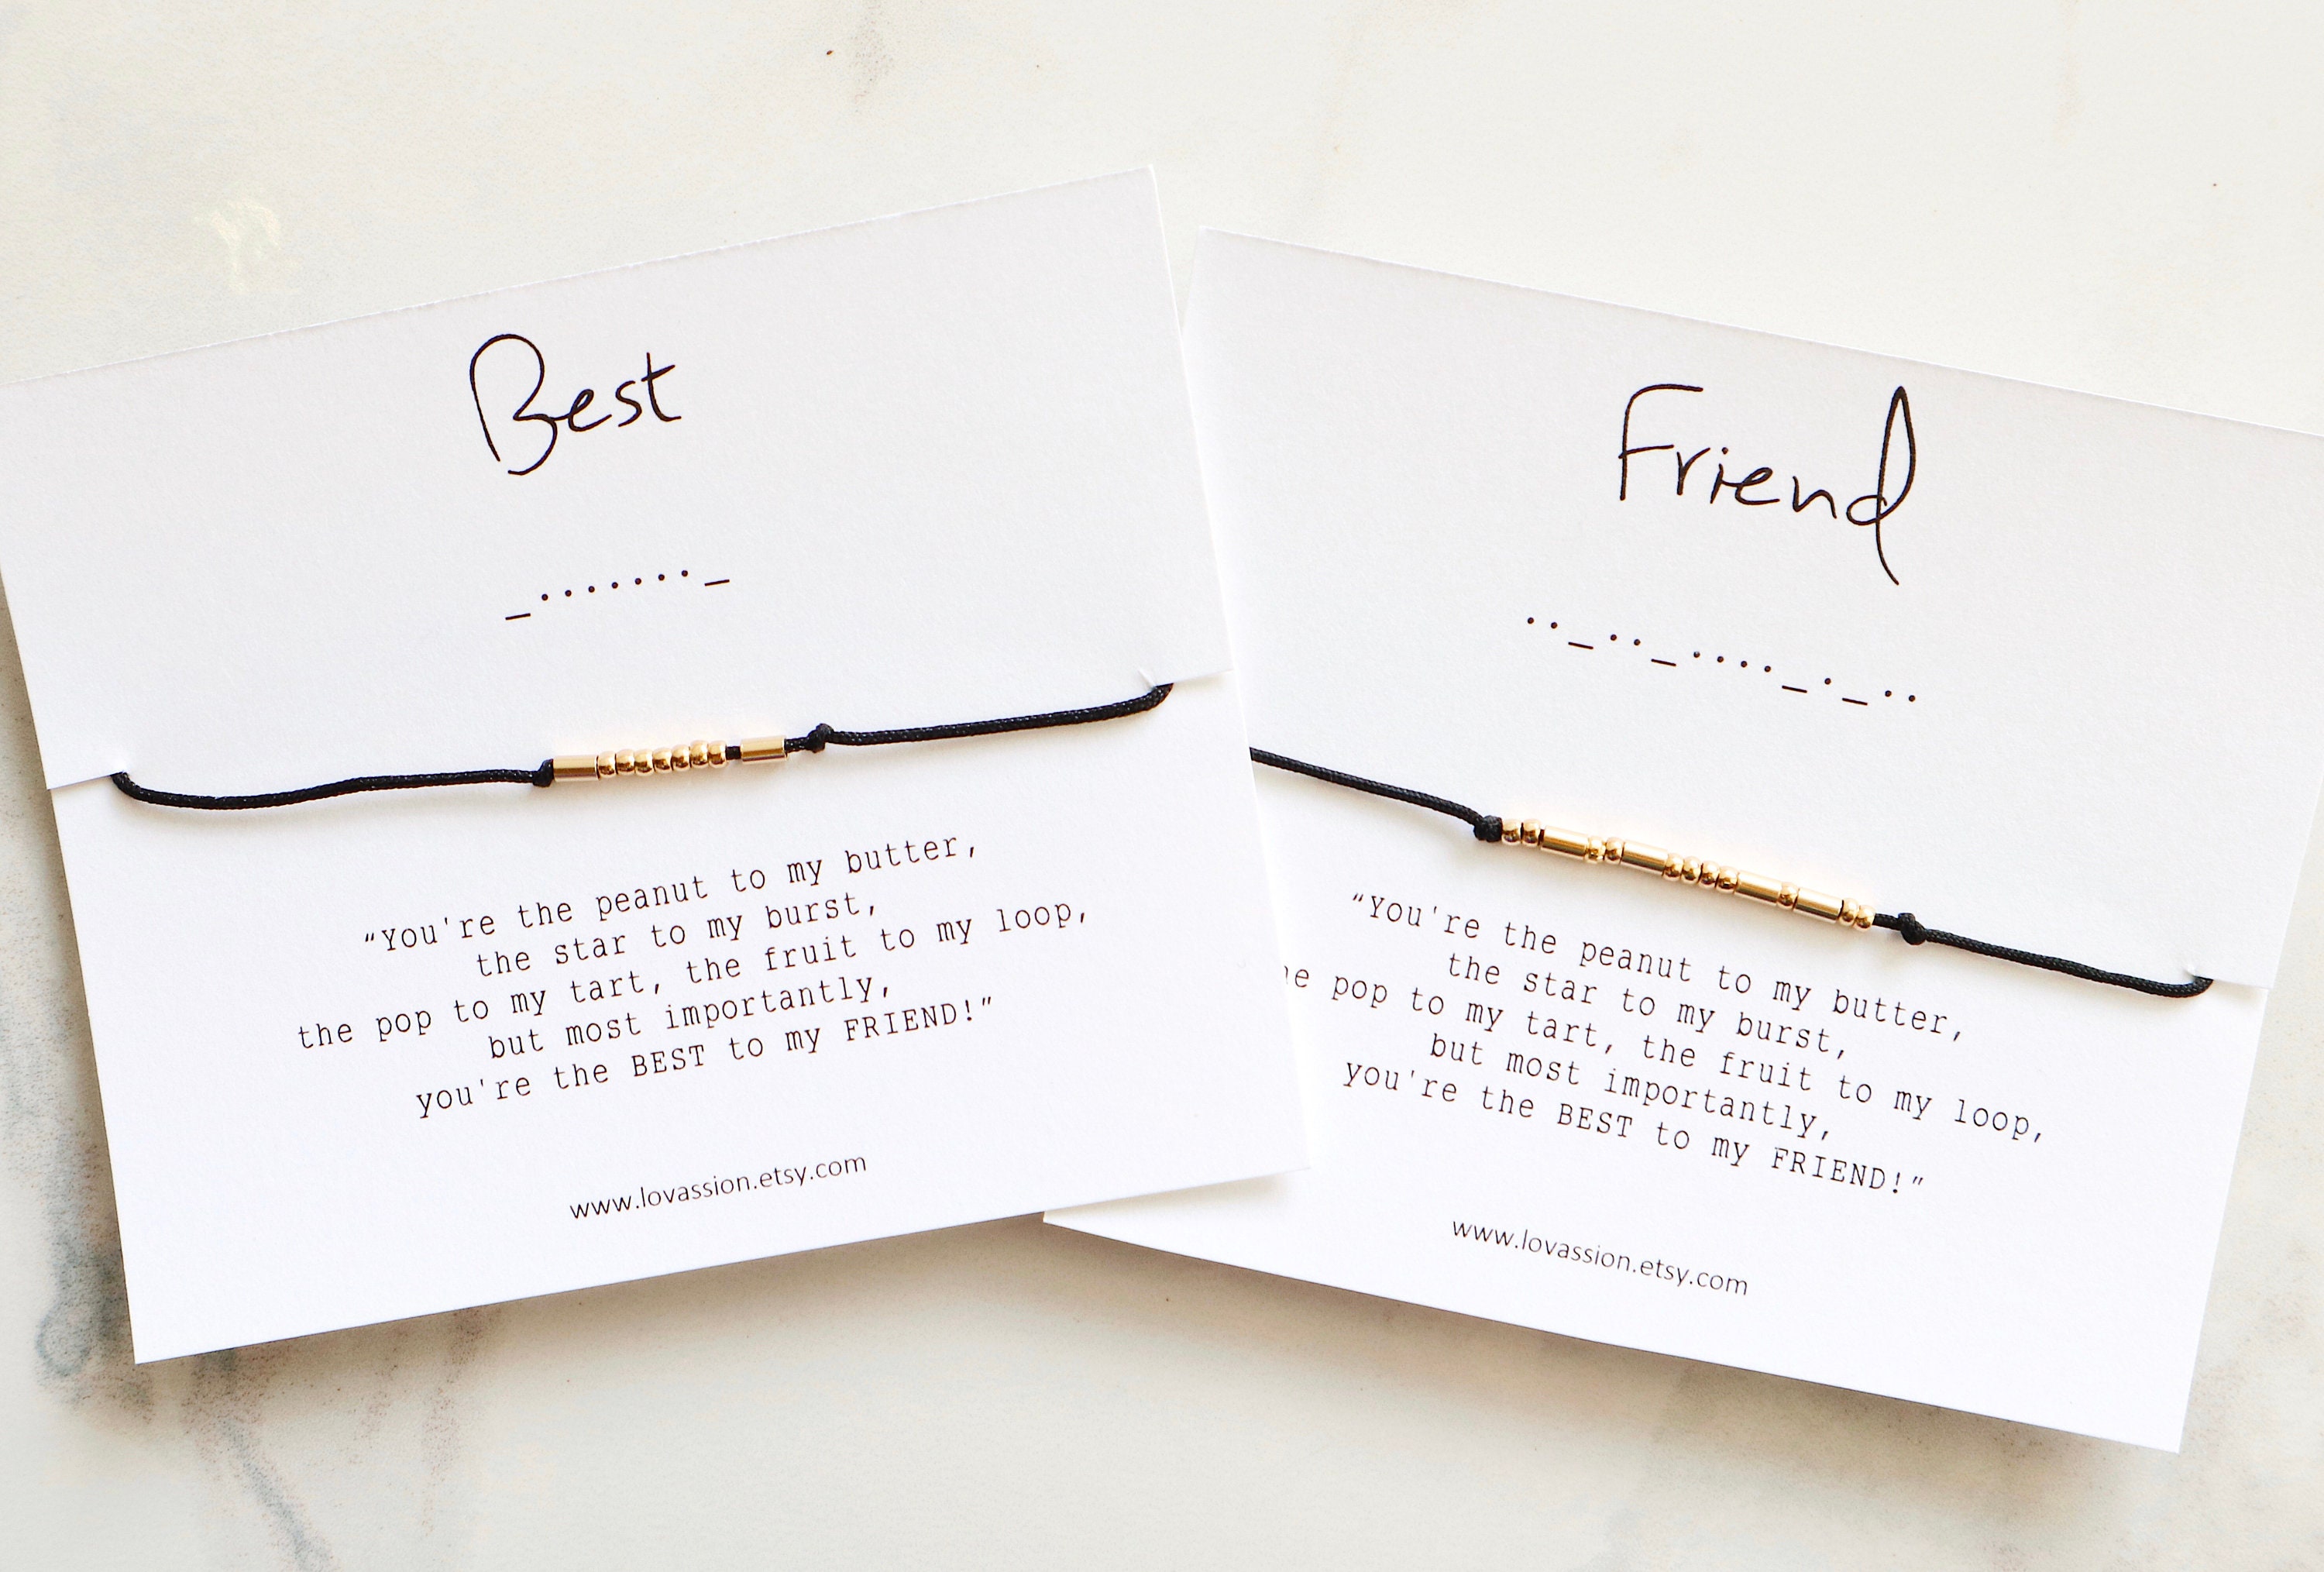 Best
_......._
"You're the peanut to my butter,
the star to my burst,
the pop to my tart, the fruit to my loop,
but most importantly,
you're the BEST to my FRIEND!"
www.lovassion.etsy.com
Friend
.._.._...._._..
"You're the peanut to my butter,
the star to my burst,
pop to my tart, the fruit to my loop,
but most importantly,
you're the BEST to my FRIEND!"
www.lovassion.etsy.com